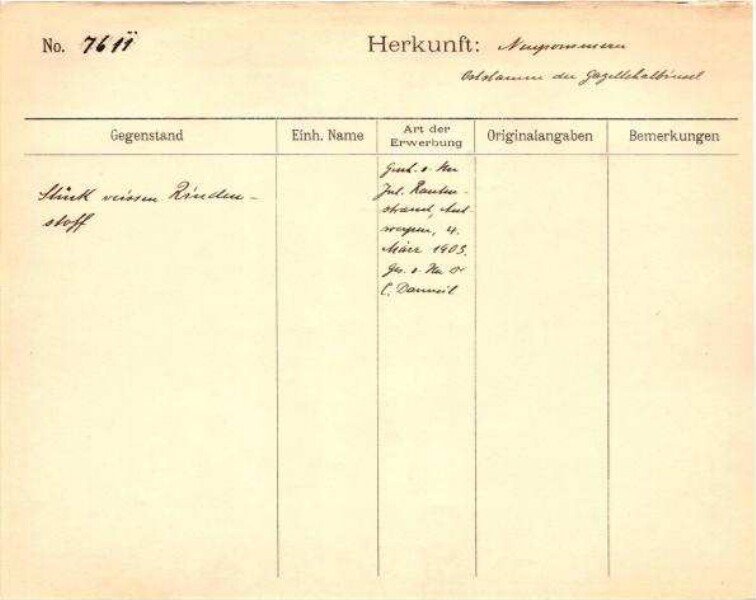 No. 7611
Herkunft: Neupommern
Oststamm der Gazellehalbinsel
Gegenstand
Einh. Name
Art der
Erwerbung
Originalangaben
Bemerkungen
Stück weissen Rinden-
stoff
Gesch. v. Hrn
Jul. Rauten-
strauch, Ant-
werpen, 4.
März 1903.
Ges. v. Hrn
C. Danneil